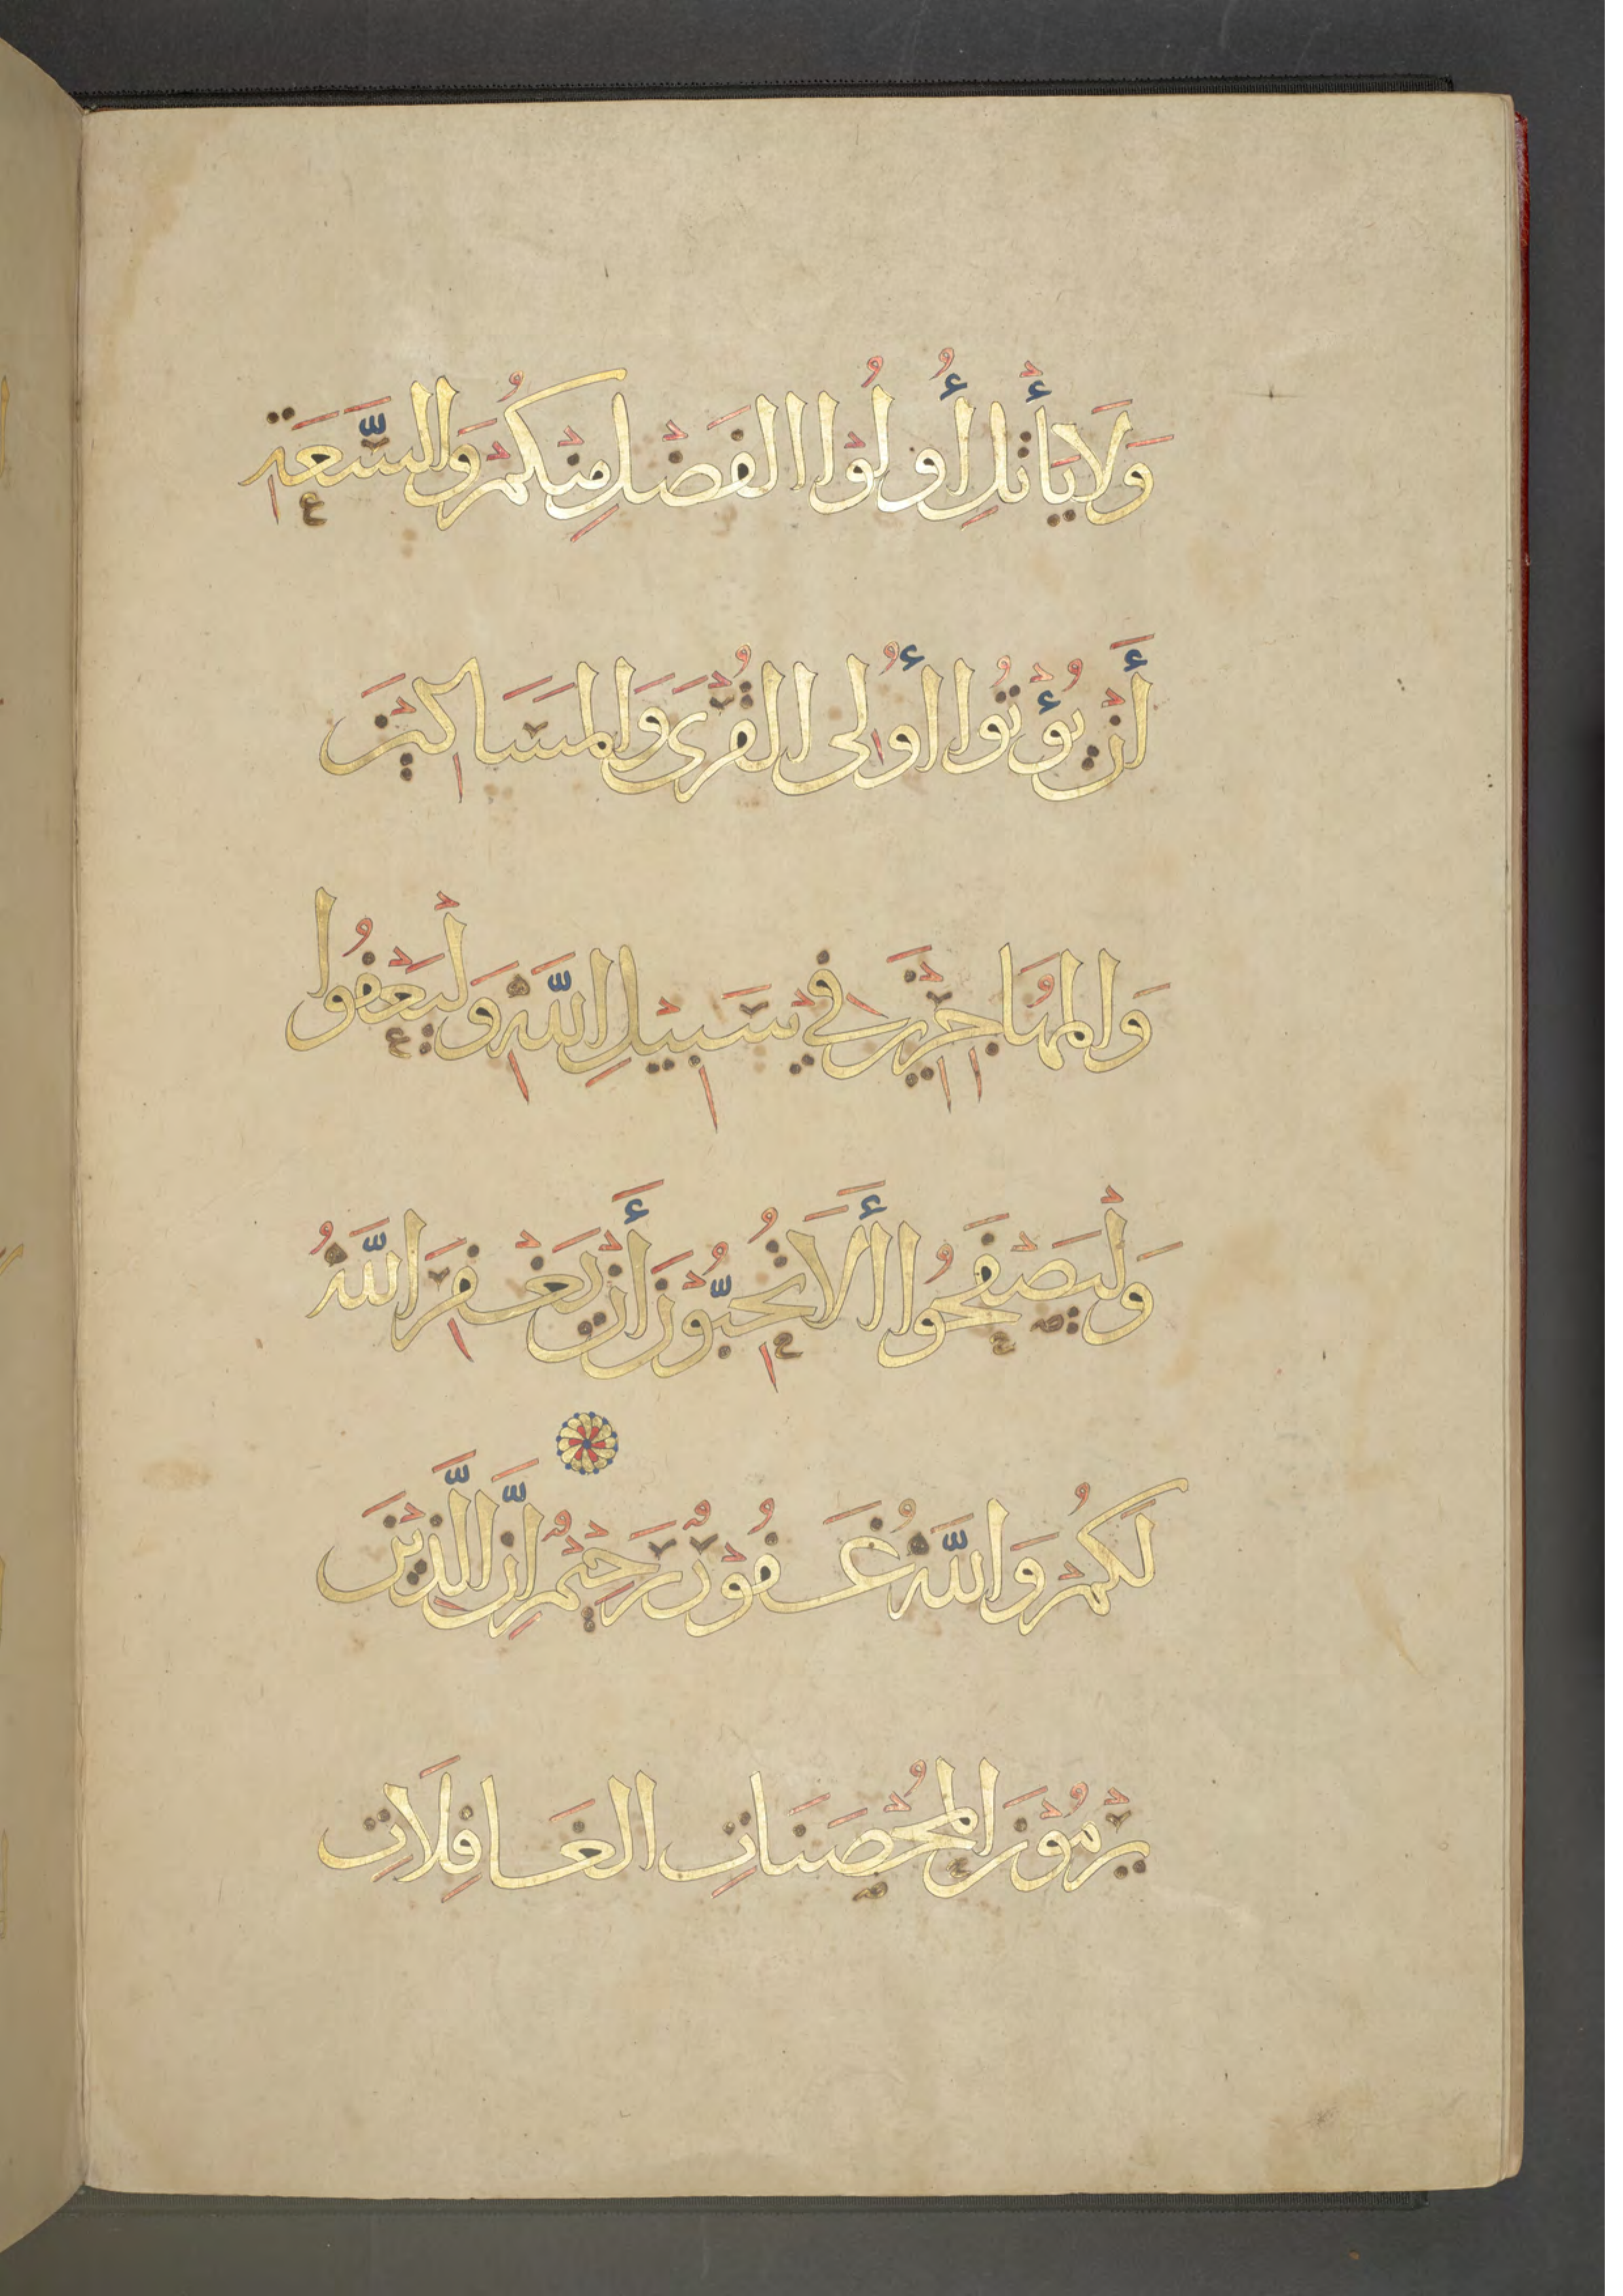 وَلَا يَأْتَلِ أُولُوْا الفَضْلِ مِنْكُمْ وَالسَّعَةِ
أَنْ يُؤْتُوا أُولِى القُرْبَى وَالمَسَاكِيْنَ
وَالمُهَاجِرِيْنَ فِيْ سَبِيْلِ اللَّهِ وَلْيَعْفُوا
وَلْيَصْفَحُوا أَلَا تُحِبُّوْنَ أَنْ يَغْفِرَ اللَّهُ
لَكُمْ وَاللَّهُ غَفُوْرٌ رَحِيْمٌ إِنَّ الَّذِيْنَ
يَرْمُوْنَ المُحْصَنَاتِ الغَافِلَاتِ